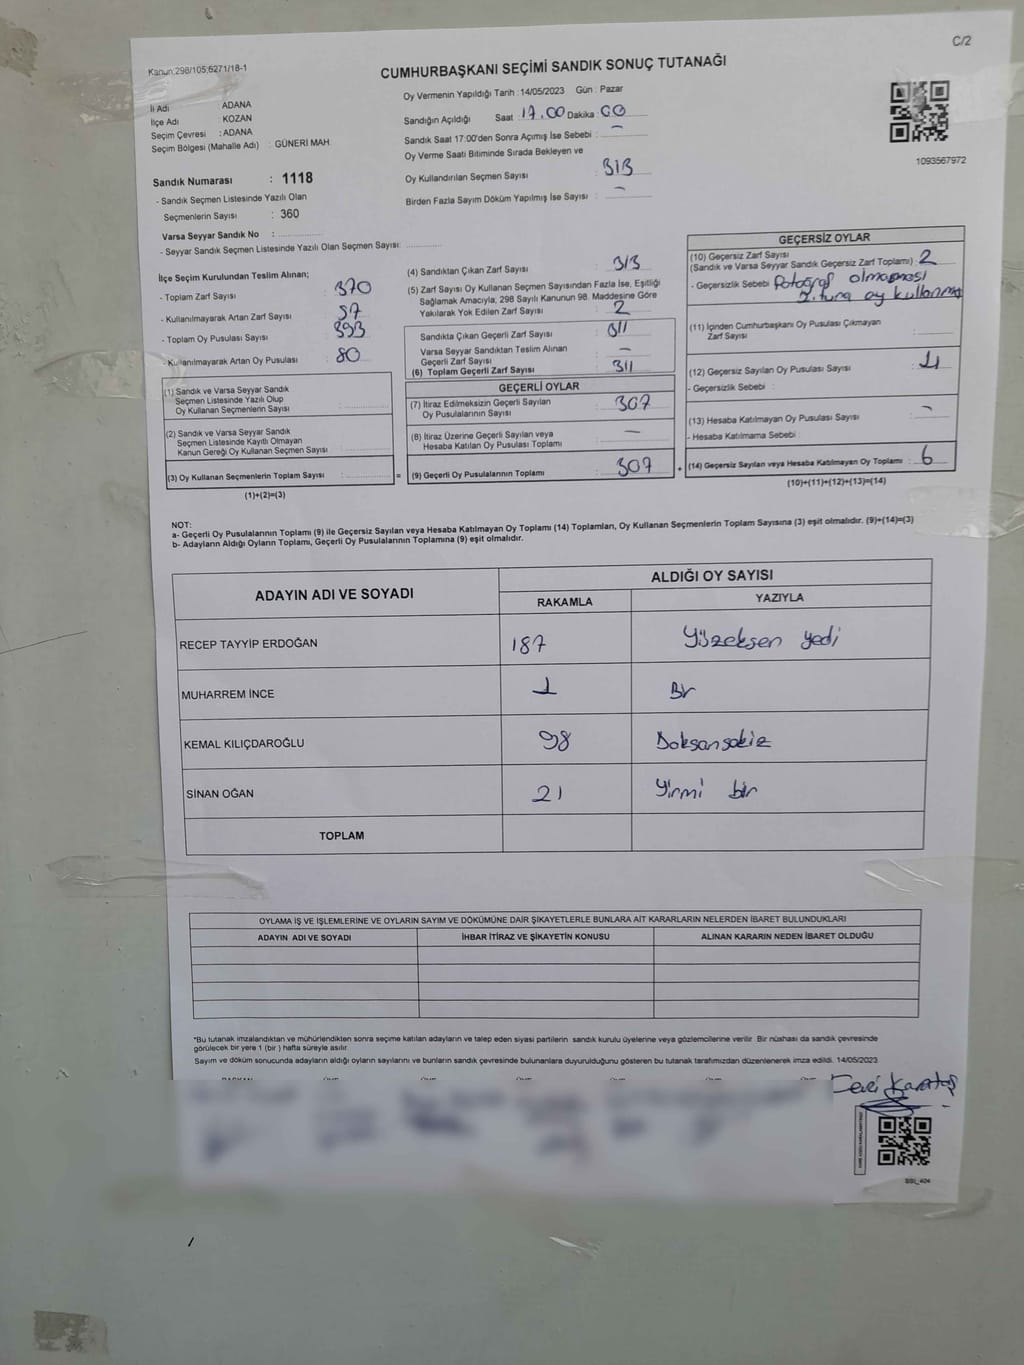 C/2
Kanun:298/105;6271/18-1
CUMHURBAŞKANI SEÇİMİ SANDIK SONUÇ TUTANAĞI
İl Adı : ADANA
İlçe Adı : KOZAN
Seçim Çevresi : ADANA
Seçim Bölgesi (Mahalle Adı) : GÜNERİ MAH.
Sandık Numarası : 1118
- Sandık Seçmen Listesinde Yazılı Olan
Seçmenlerin Sayısı : 360
Varsa Seyyar Sandık No :
- Seyyar Sandık Seçmen Listesinde Yazılı Olan Seçmen Sayısı:
Oy Vermenin Yapıldığı Tarih :14/05/2023 Gün : Pazar
Sandığın Açıldığı Saat : 17.00 Dakika : 00
Sandık Saat 17:00'den Sonra Açımış İse Sebebi : -
Oy Verme Saati Bitiminde Sırada Bekleyen ve
Oy Kullandırılan Seçmen Sayısı : 313
Birden Fazla Sayım Döküm Yapılmış İse Sayısı : -
1093567972
İlçe Seçim Kurulundan Teslim Alınan;
- Toplam Zarf Sayısı : 370
- Kullanılmayarak Artan Zarf Sayısı : 57
- Toplam Oy Pusulası Sayısı : 393
- Kullanılmayarak Artan Oy Pusulası : 80
(1) Sandık ve Varsa Seyyar Sandık
Seçmen Listesinde Yazılı Olup
Oy Kullanan Seçmenlerin Sayısı :
(2) Sandık ve Varsa Seyyar Sandık
Seçmen Listesinde Kayıtlı Olmayan
Kanun Gereği Oy Kullanan Seçmen Sayısı :
(3) Oy Kullanan Seçmenlerin Toplam Sayısı : =
(1)+(2)=(3)
(4) Sandıktan Çıkan Zarf Sayısı : 313
(5) Zarf Sayısı Oy Kullanan Seçmen Sayısından Fazla İse, Eşitliği
Sağlamak Amacıyla; 298 Sayılı Kanunun 98. Maddesine Göre
Yakılarak Yok Edilen Zarf Sayısı : 2
Sandıkta Çıkan Geçerli Zarf Sayısı : 311
Varsa Seyyar Sandıktan Teslim Alınan
Geçerli Zarf Sayısı : -
(6) Toplam Geçerli Zarf Sayısı : 311
GEÇERLİ OYLAR
(7) İtiraz Edilmeksizin Geçerli Sayılan
Oy Pusulalarının Sayısı : 307
(8) İtiraz Üzerine Geçerli Sayılan veya
Hesaba Katılan Oy Pusulası Toplamı : -
(9) Geçerli Oy Pusulalarının Toplamı : 307 +
GEÇERSİZ OYLAR
(10) Geçersiz Zarf Sayısı
(Sandık ve Varsa Seyyar Sandık Geçersiz Zarf Toplamı) : 2
- Geçersizlik Sebebi : Fotoğraf olmaması
2. tura oy kullanma
(11) İçinden Cumhurbaşkanı Oy Pusulası Çıkmayan
Zarf Sayısı :
(12) Geçersiz Sayılan Oy Pusulası Sayısı : 4
- Geçersizlik Sebebi :
(13) Hesaba Katılmayan Oy Pusulası Sayısı : -
- Hesaba Katılmama Sebebi :
(14) Geçersiz Sayılan veya Hesaba Katılmayan Oy Toplamı : 6
(10)+(11)+(12)+(13)=(14)
NOT:
a- Geçerli Oy Pusulalarının Toplamı (9) ile Geçersiz Sayılan veya Hesaba Katılmayan Oy Toplamı (14) Toplamları, Oy Kullanan Seçmenlerin Toplam Sayısına (3) eşit olmalıdır. (9)+(14)=(3)
b- Adayların Aldığı Oyların Toplamı, Geçerli Oy Pusulalarının Toplamına (9) eşit olmalıdır.
ADAYIN ADI VE SOYADI ALDIĞI OY SAYISI
RAKAMLA YAZIYLA
RECEP TAYYİP ERDOĞAN 187 Yüzseksen yedi
MUHARREM İNCE 1 Bir
KEMAL KILIÇDAROĞLU 98 Doksansekiz
SİNAN OĞAN 21 Yirmi bir
TOPLAM
OYLAMA İŞ VE İŞLEMLERİNE VE OYLARIN SAYIM VE DÖKÜMÜNE DAİR ŞİKAYETLERLE BUNLARA AİT KARARLARIN NELERDEN İBARET BULUNDUKLARI
ADAYIN ADI VE SOYADI İHBAR İTİRAZ VE ŞİKAYETİN KONUSU ALINAN KARARIN NEDEN İBARET OLDUĞU
*Bu tutanak imzalandıktan ve mühürlendikten sonra seçime katılan adayların ve talep eden siyasi partilerin sandık kurulu üyelerine veya gözlemcilerine verilir. Bir nüshası da sandık çevresinde
görülecek bir yere 1 (bir) hafta süreyle asılır.
Sayım ve döküm sonucunda adayların aldığı oyların sayılarını ve bunların sandık çevresinde bulunanlara duyurulduğunu gösteren bu tutanak tarafımızdan düzenlenerek imza edildi. 14/05/2023